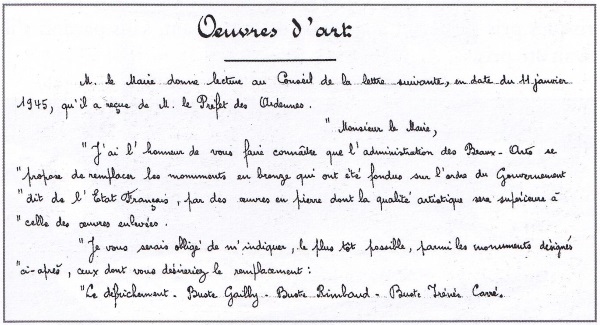 Oeuvres d'art
M. le Maire donne lecture au Conseil de la lettre suivante, en date du 11 janvier
1945, qu'il a reçue de M. le Préfet des Ardennes.
" Monsieur le Maire,
" J'ai l'honneur de vous faire connaître que l'administration des Beaux-Arts se
" propose de remplacer les monuments en bronze qui ont été fondus sur l'ordre du Gouvernement
" dit de l'Etat Français, par des œuvres en pierre dont la qualité artistique sera supérieure à
" celle des œuvres enlevées.
" Je vous serais obligé de m'indiquer, le plus tôt possible, parmi les monuments désignés
" ci-après, ceux dont vous désireriez le remplacement :
" Le défrichement - Buste Gailly - Buste Rimbaud - Buste Irénée Carré.